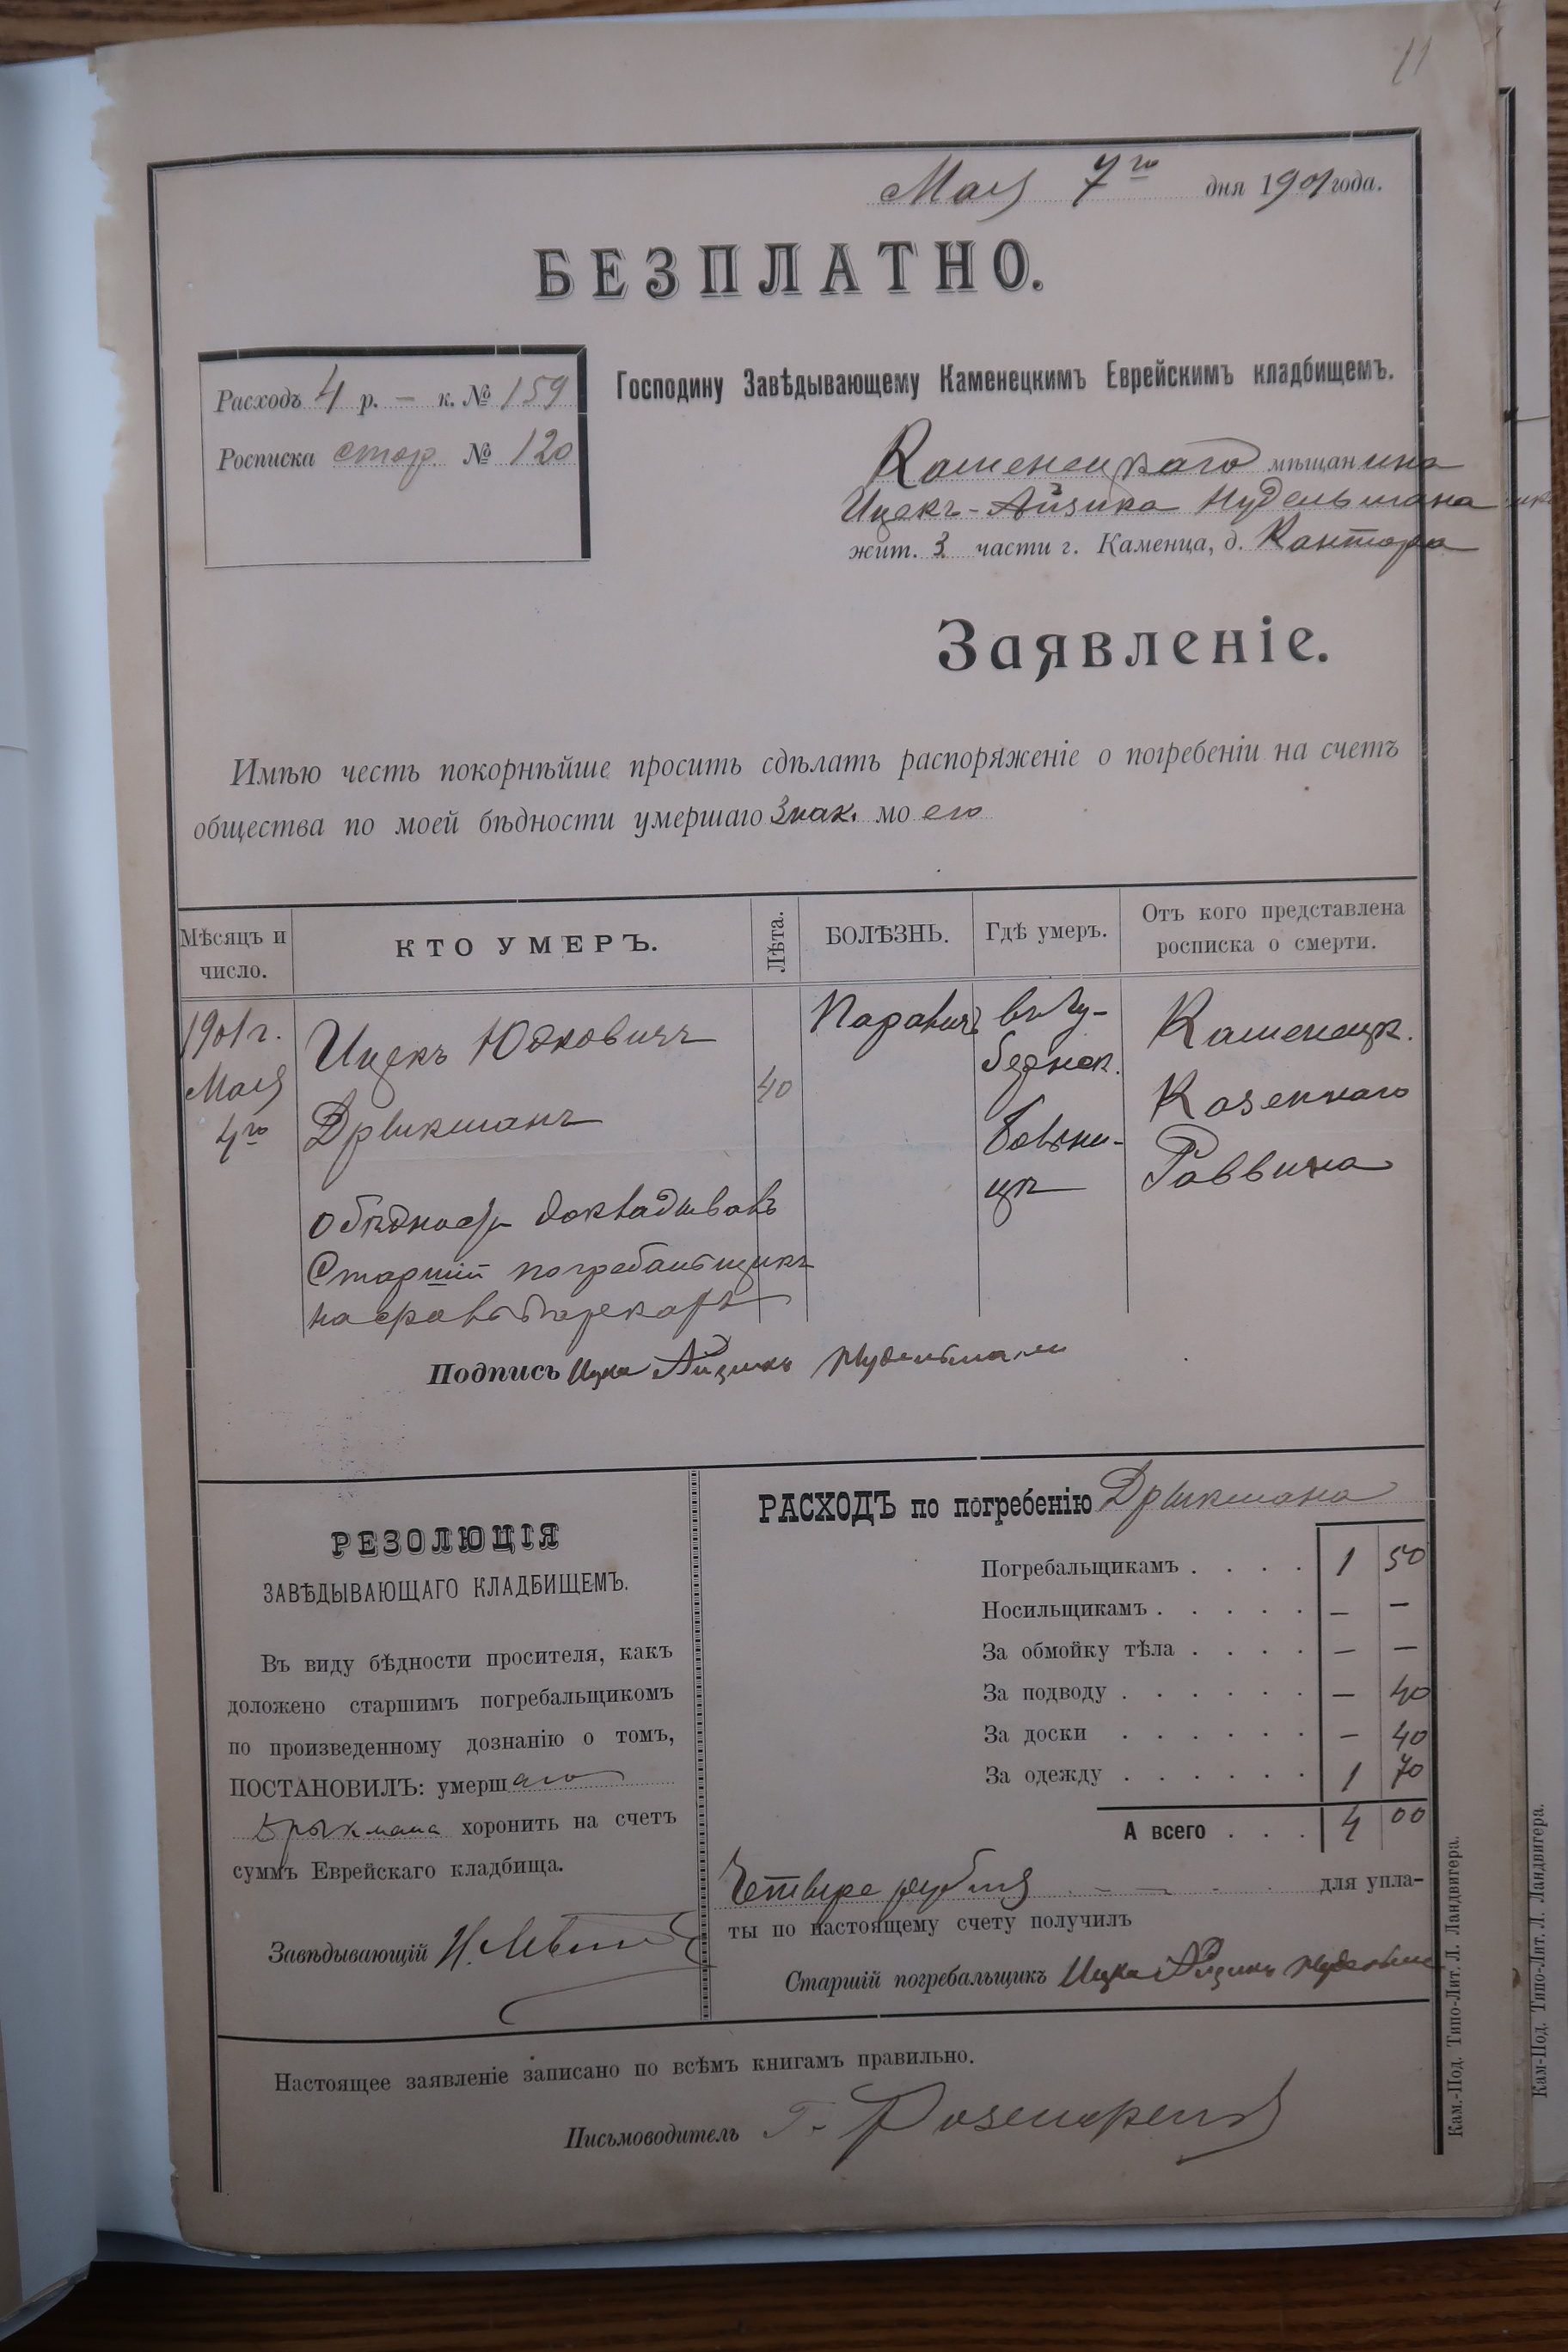 11
Мая 7го дня 1901 года.
БЕЗПЛАТНО.
Расходъ 4 р. — к. № 159
Росписка стор. № 120
Господину Завѣдывающему Каменецкимъ Еврейскимъ кладбищемъ.
Каменецкаго мѣщанина
Ицекъ-Айзика Нудельмана
жит. 3 части г. Каменца, д. Кантора
Заявленіе.
Имѣю честь покорнѣйше просить сдѣлать распоряженіе о погребеніи на счетъ
общества по моей бѣдности умершаго знак. мо его
Мѣсяцъ и число.
КТО УМЕРЪ.
Лѣта.
БОЛѢЗНЬ.
Гдѣ умеръ.
Отъ кого представлена росписка о смерти.
1901 г. Мая 4го
Ицекъ Юдковичъ
Дрыкманъ
40
въ Гу-
бернск.
Больни-
цѣ
Каменецк.
Казеннаго
Раввина
о бѣдности докладывалъ
Старшій погребальщикъ
Подпись Ицка Айзикъ Нудельман
РЕЗОЛЮЦІЯ
ЗАВѢДЫВАЮЩАГО КЛАДБИЩЕМЪ.
Въ виду бѣдности просителя, какъ
доложено старшимъ погребальщикомъ
по произведенному дознанію о томъ,
ПОСТАНОВИЛЪ: умершаго
Дрыкмана хоронить на счетъ
суммъ Еврейскаго кладбища.
Завѣдывающій
РАСХОДЪ по погребенію Дрыкмана
Погребальщикамъ . . . . 1 50
Носильщикамъ . . . . . — —
За обмойку тѣла . . . . — —
За подводу . . . . . . — 40
За доски . . . . . . — 40
За одежду . . . . . . 1 70
А всего . . . 4 00
Четыре рубля для упла-
ты по настоящему счету получилъ
Старшій погребальщикъ Ицка Айзикъ Нудельман
Настоящее заявленіе записано по всѣмъ книгамъ правильно.
Письмоводитель
Кам.-Под. Типо-Лит. Л. Ландвигера.
Кам-Под. Типо-Лит. Л. Ландвигера.